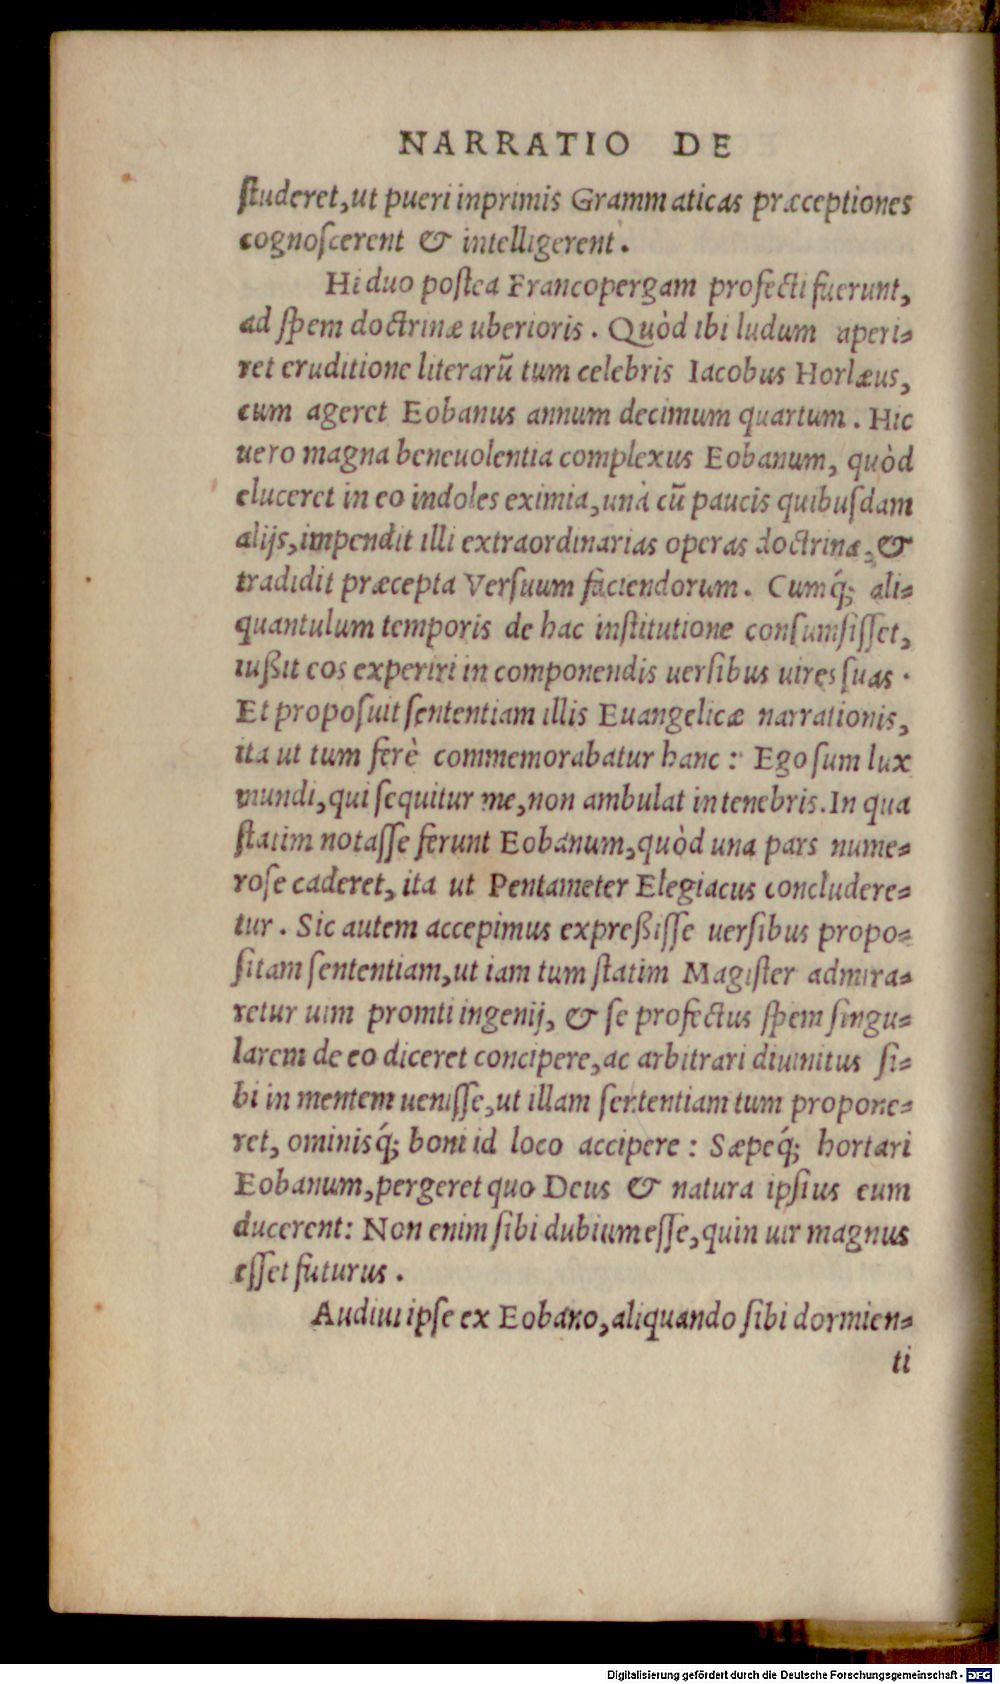 NARRATIO DE
ſtuderet, ut pueri inprimis Grammaticas præceptiones
cognoſcerent & intelligerent.
Hi duo poſtea Francopergam profecti fuerunt,
ad ſpem doctrinæ uberioris. Quòd ibi ludum aperi-
ret eruditione literarũ tum celebris Iacobus Horlæus,
cum ageret Eobanus annum decimum quartum. Hic
uero magna beneuolentia complexus Eobanum, quòd
eluceret in eo indoles eximia, unà cũ paucis quibuſdam
alijs, impendit illi extraordinarias operas doctrinæ, &
tradidit præcepta Verſuum faciendorum. Cumq́; ali-
quantulum temporis de hac inſtitutione conſumſiſſet,
iußit eos experiri in componendis uerſibus uires ſuas.
Et propoſuit ſententiam illis Euangelicæ narrationis,
ita ut tum ferè commemorabatur hanc: Ego ſum lux
mundi, qui ſequitur me, non ambulat in tenebris. In qua
ſtatim notaſſe ferunt Eobanum, quòd una pars nume-
roſe caderet, ita ut Pentameter Elegiacus concludere-
tur. Sic autem accepimus expreßiſſe uerſibus propo-
ſitam ſententiam, ut iam tum ſtatim Magiſter admira-
retur uim promti ingenij, & ſe profectus ſpem ſingu-
larem de eo diceret concipere, ac arbitrari diuinitus ſi-
bi in mentem ueniſſe, ut illam ſententiam tum propone-
ret, ominisq́; boni id loco accipere: Sæpeq́; hortari
Eobanum, pergeret quo Deus & natura ipſius eum
ducerent: Non enim ſibi dubium eſſe, quin uir magnus
eſſet futurus.
Audiui ipſe ex Eobano, aliquando ſibi dormien-
ti
Digitalisierung gefördert durch die Deutsche Forschungsgemeinschaft - DFG